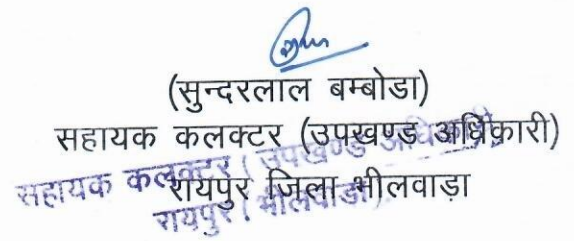 (सुन्दरलाल बम्बोडा)
सहायक कलक्टर (उपखण्ड अधिकारी)
रायपुर जिला भीलवाड़ा
सहायक कलक्टर (उपखण्ड अधिकारी)
रायपुर (भीलवाड़ा)